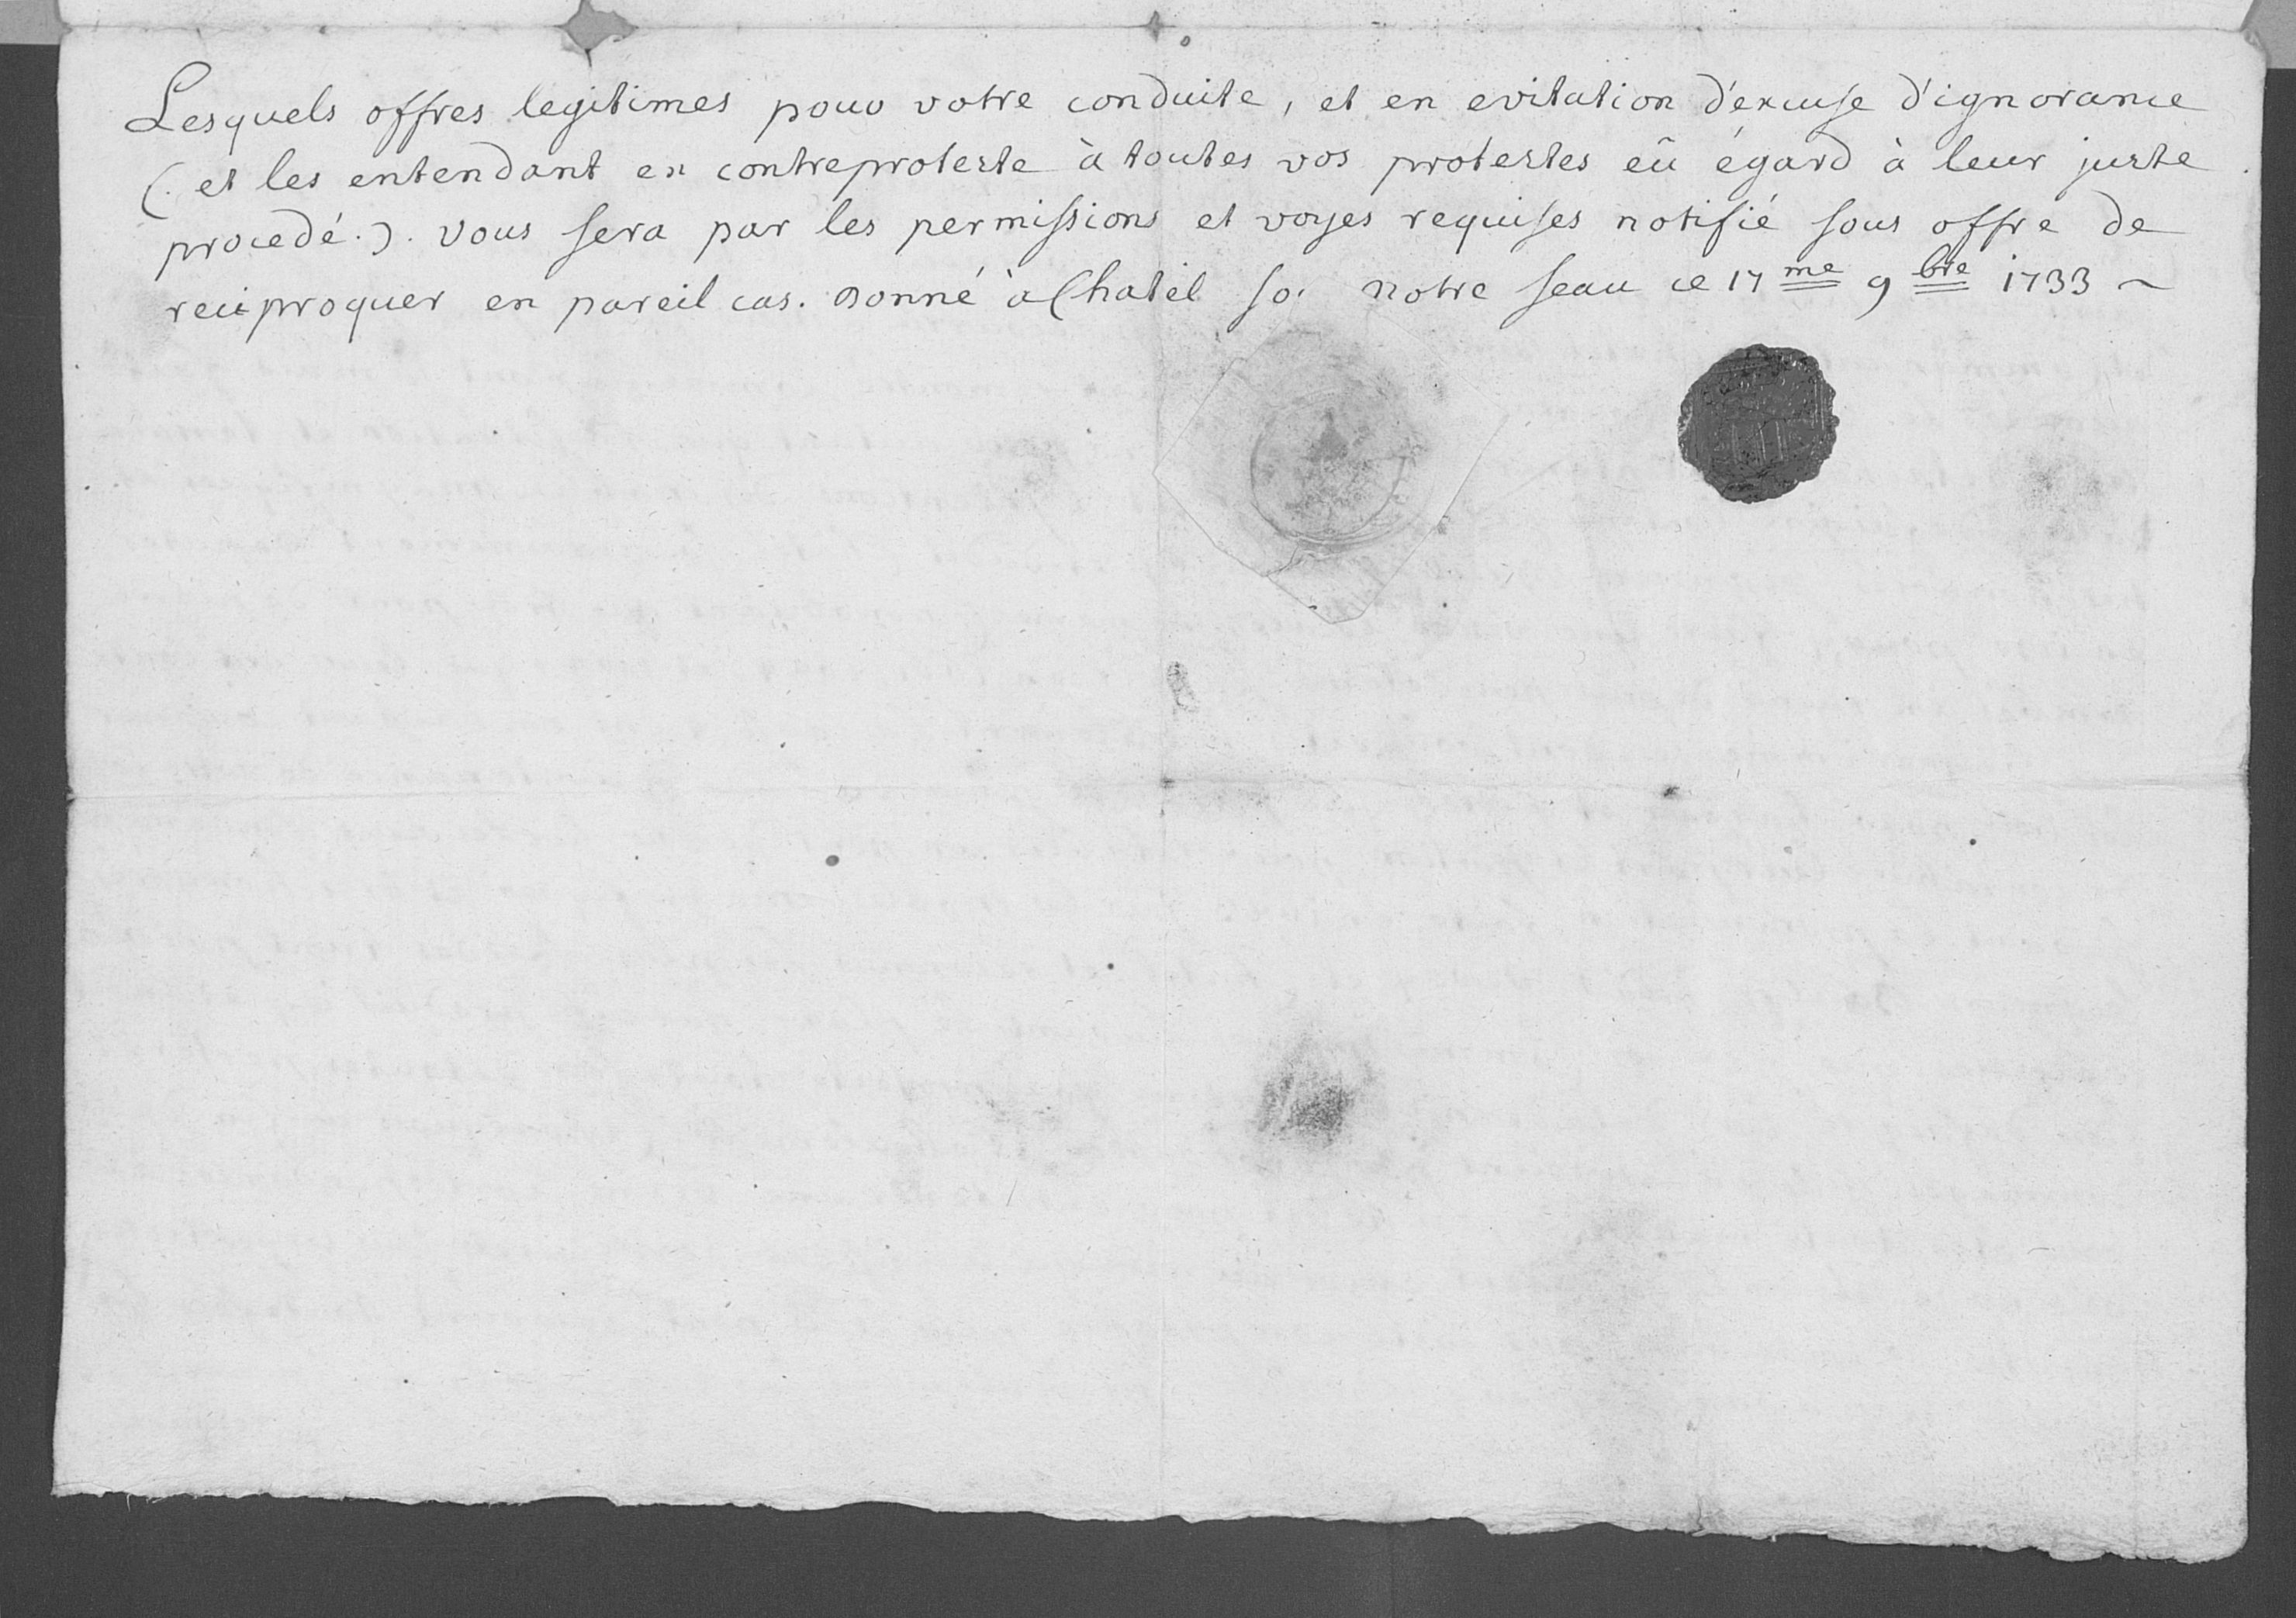 Lesquels offres legitimes pour votre conduite, et en evitation d'excuse d'ignorance
(. et les entendant en contreproteste à toutes vos protestes eû égard à leur juste
procedé.). vous sera par les permissions et voyes requises notifié sous offre de
reciproquer en pareil cas. Donné à Chatel so. notre seau ce 17me 9bre 1733 ~